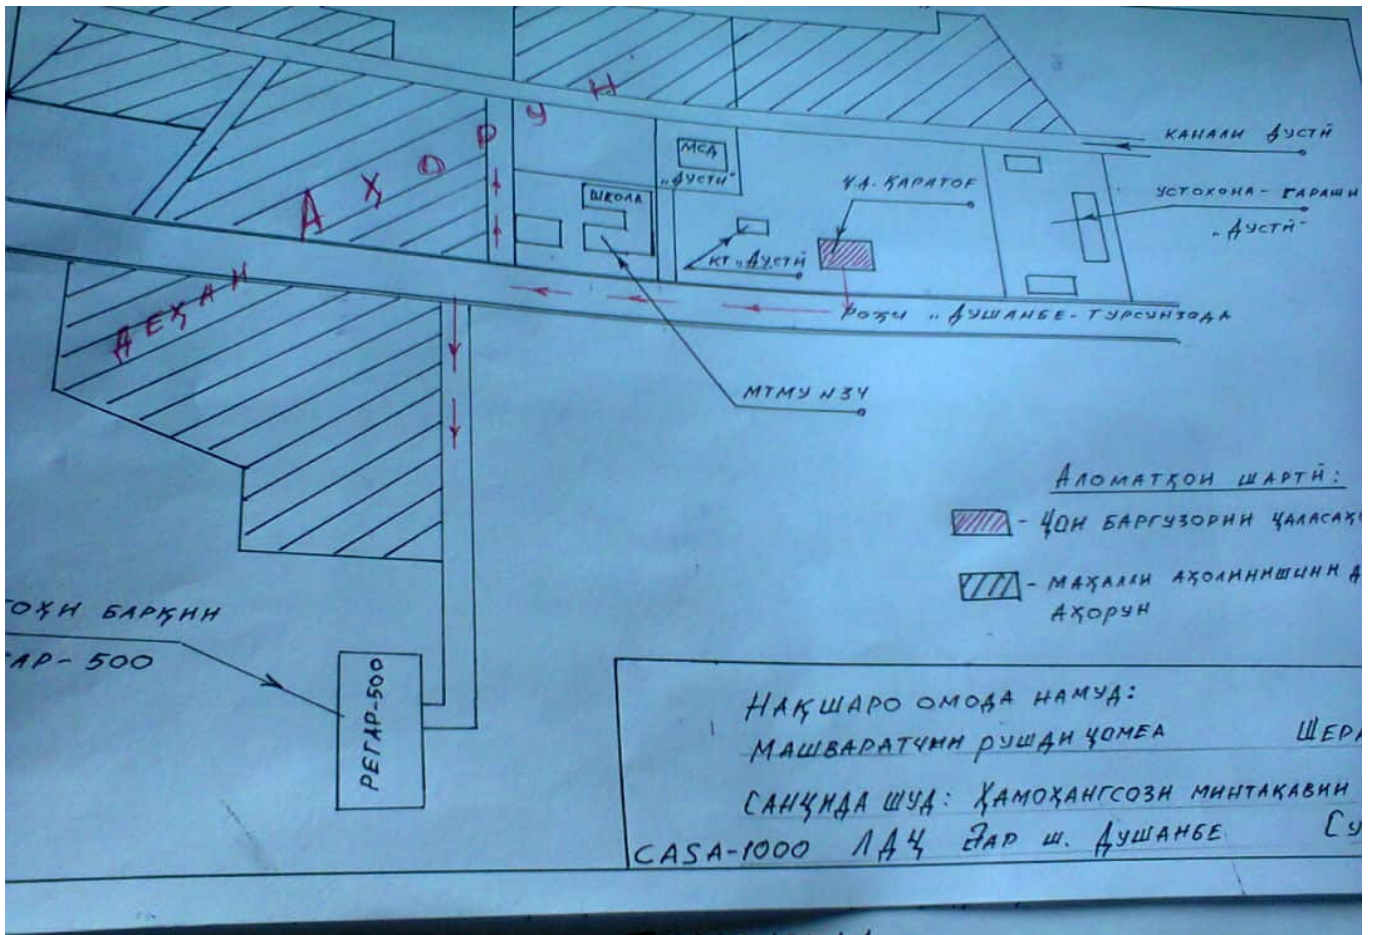 КАНАЛИ ДУСТӢ
АҲОРУН
МСД
„ДУСТӢ"
Ҷ.Д. ҚАРАТОҒ
УСТОХОНА - ГАРАЖИ
„ДУСТӢ"
ШКОЛА
КТ „ДУСТӢ
ДЕҲАИ
РОҲИ „ДУШАНБЕ-ТУРСУНЗОДА
МТМУ N34
АЛОМАТҲОИ ШАРТӢ:
- ҶОИ БАРГУЗОРИИ ҶАЛАСАҲО
- МАҲАЛЛИ АҲОЛИНИШИНИ Д
АҲОРУН
ГОҲИ БАРҚИИ
ГАР-500
РЕГАР-500
НАҚШАРО ОМОДА НАМУД:
МАШВАРАТЧИИ РУШДИ ҶОМЕА ШЕРА
САНҶИДА ШУД: ҲАМОҲАНГСОЗИ МИНТАҚАВИИ
CASA-1000 ЛДҶ ДАР Ш. ДУШАНБЕ СУ